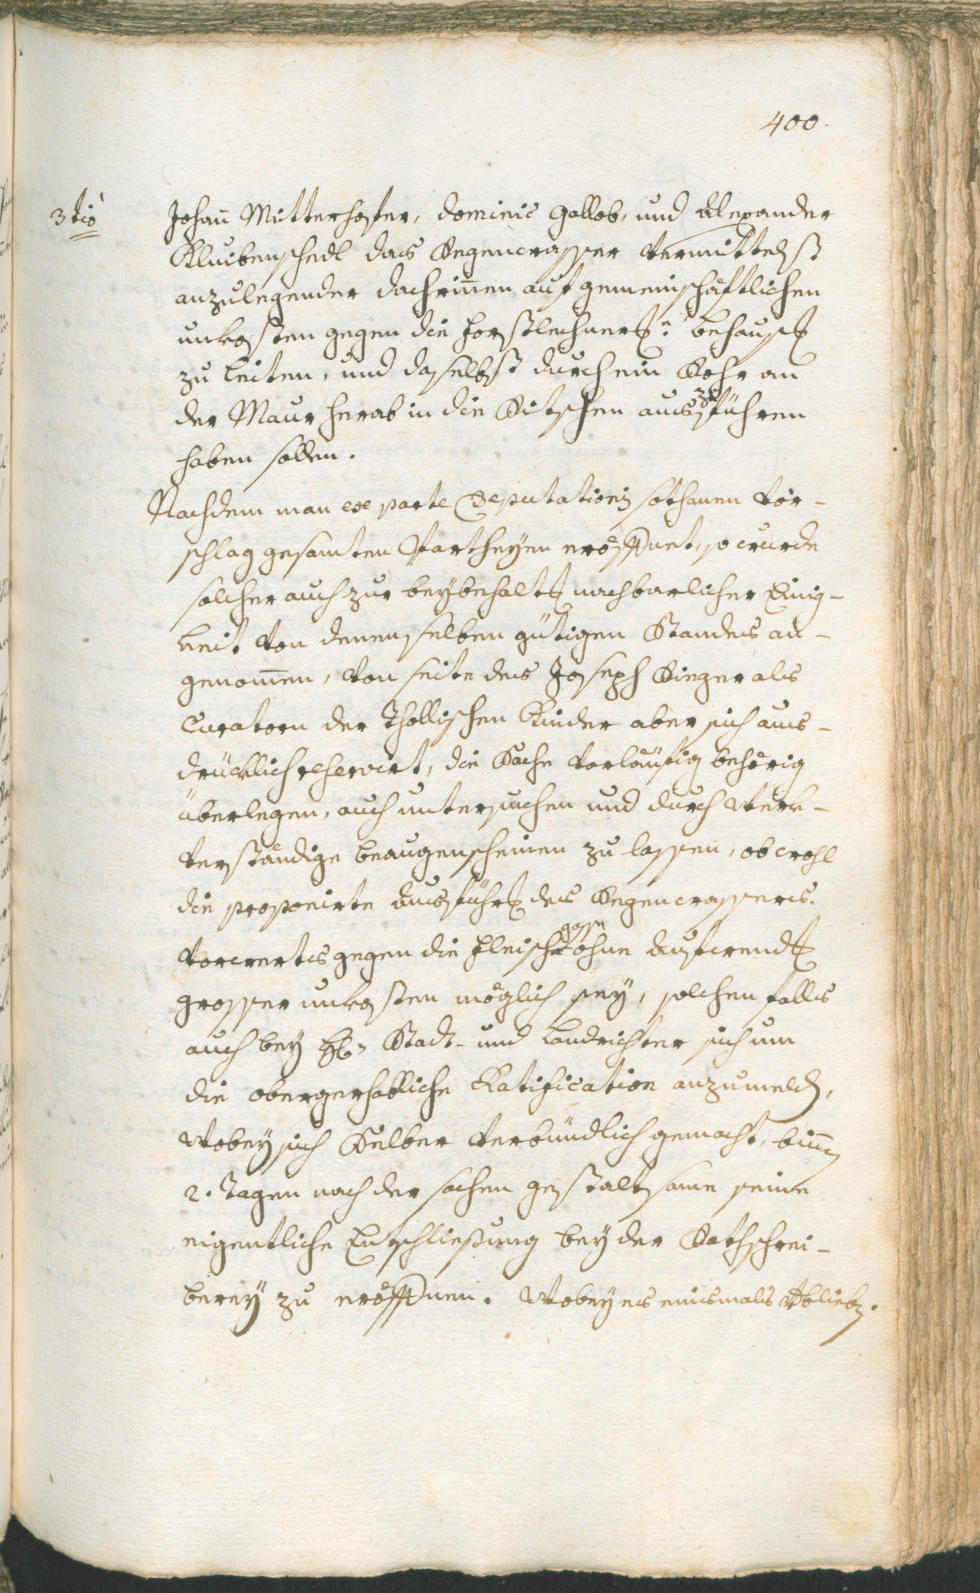 400.
3tiò
Johañ Mitterhofer, Dominic Gallob, und Alexander
Kluibenschedl das Regenwasser vermittelst
anzulegender Dachriñen auf gemeinschäftlichen
unkosten gegen die Horstlechner: behaus:
zu leiten, und daselbst durch ein Rohr an
der Maur herab in die Ritschen aus zu führen
haben sollen.
Nachdem man ex parte Deputationis sothanen Vor-
schlag gesamten Partheyen eröffnet, so wurde
solcher auch zur beybehalt: nachbarlicher Einig-
keit von denenselben gütigen Standes an-
genom̃en, von seite des Joseph Singer als
Curatorn der Thollischen Kinder aber sich aus-
drücklich reservirt, die Sache vorläufig behörig
überlegen, auch untersuchen und durch Werk-
verständige beaugenscheinen zu lassen, ob wohl
die proponirte Ausführ: des Regenwassers
vorwerts gegen die Fleischgasse ohne Aufwend:
grosser unkosten möglich sey, solchen falls
auch bey H: Stadt- und Landrichter sich um
die obergerhabliche Ratification anzumelden,
Wobey sich Selber verbündlich gemacht, biñen
2. Tagen nach der sachen gestaltsame seine
eigentliche Entschließung bey der Rathschrei-
berey zu eröffnen. Wobey es einsmals verbliebe.